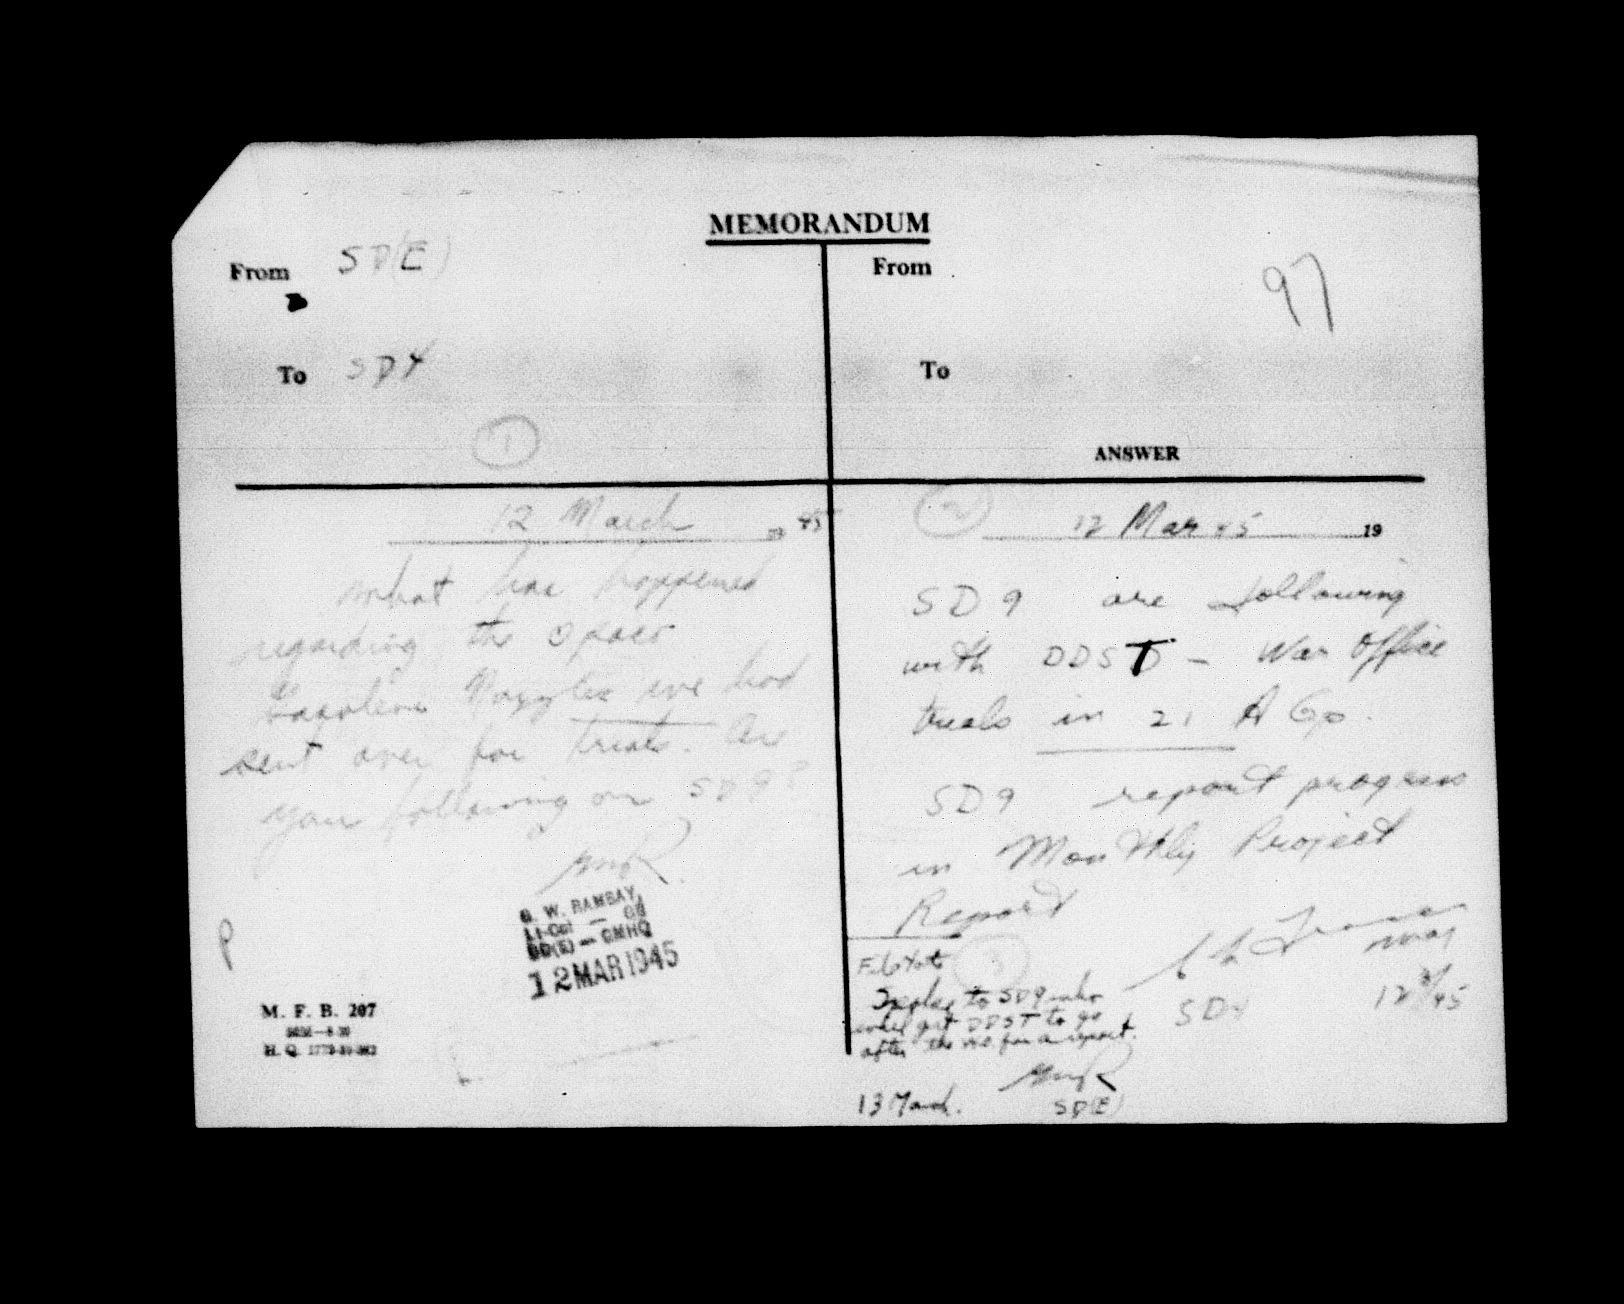 MEMORANDUM
From SD(E)
To SD4
1
12 March 19 45
What has happened
regarding the
Gasoline Nozzles we had
sent over for trials. Are
you following on SD9?
G. W. RAMSAY,
Lt-Col
SD(E) — CMHQ
12 MAR 1945
M. F. B. 207
H. Q. 1772-39-
97
From
To
ANSWER
2
12 Mar 45 19
SD 9 are following
with DDST – War Office
trials in 21 A Gp.
SD 9 report progress
in Monthly Project
Report
SD4 12/3/45
3
I spoke to SD9 who
will get DDST to go
after the W.O. for a report.
13 March. SD(E)